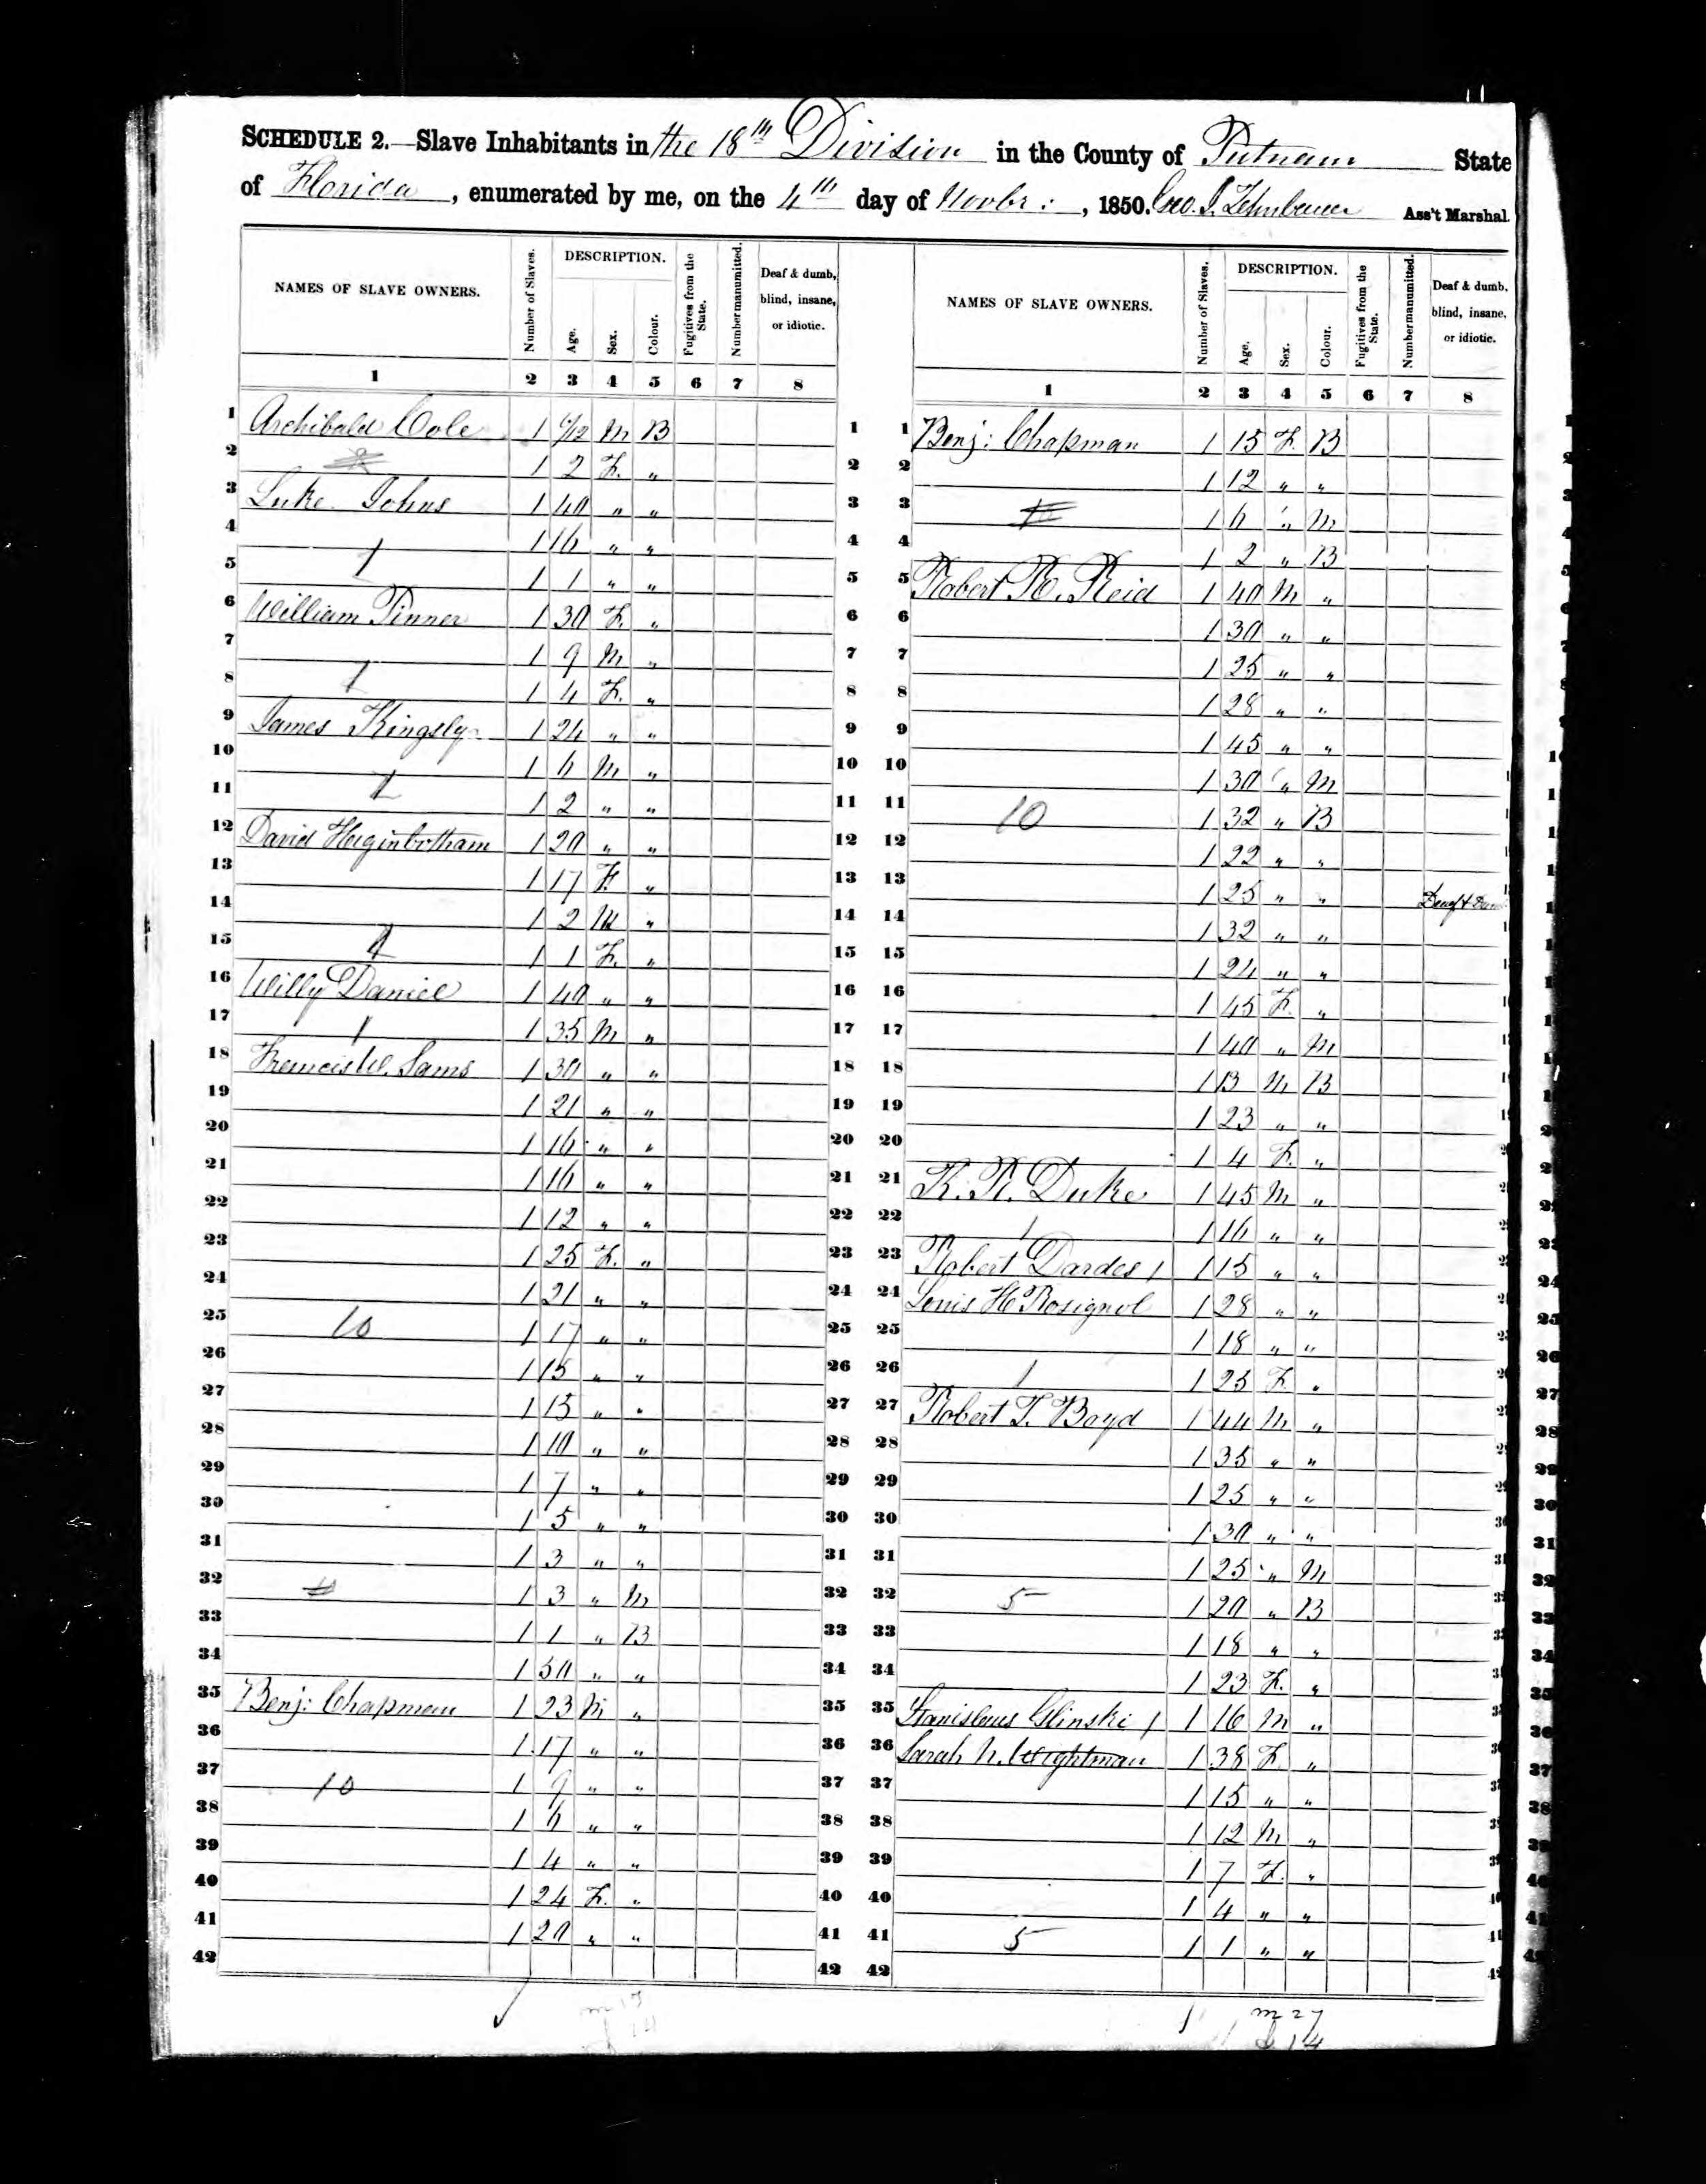 SCHEDULE 2.—Slave Inhabitants in the 18th Division in the County of Putnam State
of Florida, enumerated by me, on the 4th day of Novbr:, 1850. Geo. Ass't Marshal.
NAMES OF SLAVE OWNERS. Number of Slaves. DESCRIPTION. Age. Sex. Colour. Fugitives from the State. Number manumitted. Deaf & dumb, blind, insane, or idiotic.
1 2 3 4 5 6 7 8
1 Archibald Cole 1 6/12 M B 1
2 1 2 F. " 2
3 Luke Johns 1 40 " " 3
4 1 16 " " 4
5 1 1 " " 5
6 William Pinner 1 30 F. " 6
7 1 9 M " 7
8 1 4 F. " 8
9 James Kingsly 1 24 " " 9
10 1 6 M " 10
11 1 2 " " 11
12 David Huginbotham 1 20 " " 12
13 1 17 F " 13
14 1 2 M " 14
15 1 1 F. " 15
16 Willy Daniel 1 40 " " 16
17 1 1 35 M " 17
18 Francis W. Sams 1 30 " " 18
19 1 21 " " 19
20 1 16 " " 20
21 1 16 " " 21
22 1 12 " " 22
23 1 25 F. " 23
24 1 21 " " 24
25 10 1 17 " " 25
26 1 15 " " 26
27 1 15 " " 27
28 1 10 " " 28
29 1 7 " " 29
30 1 5 " " 30
31 1 3 " " 31
32 1 3 " M 32
33 1 1 " B 33
34 1 50 " " 34
35 Benj: Chapman 1 23 M " 35
36 1 17 " " 36
37 10 1 9 " " 37
38 1 6 " " 38
39 1 4 " " 39
40 1 24 F. " 40
41 1 20 " " 41
42 42
NAMES OF SLAVE OWNERS. Number of Slaves. DESCRIPTION. Age. Sex. Colour. Fugitives from the State. Number manumitted. Deaf & dumb, blind, insane, or idiotic.
1 2 3 4 5 6 7 8
1 Benj: Chapman 1 15 F. B
2 1 12 " "
3 1 6 " M
4 1 2 " B
5 Robert R. Reid 1 40 M "
6 1 30 " "
7 1 25 " "
8 1 28 " "
9 1 45 " "
10 1 30 " M
11 10 1 32 " B
12 1 22 " "
13 1 25 " " Deaf &
14 1 32 " "
15 1 24 " "
16 1 45 F. "
17 1 40 " M
18 1 13 M B
19 1 23 " "
20 1 4 F. "
21 K. R. Duke 1 45 M "
22 1 1 16 " "
23 Robert Dardes 1 1 15 " "
24 Louis H Rosignol 1 28 " "
25 1 18 " "
26 1 1 25 F. "
27 Robert T. Boyd 1 44 M "
28 1 35 " "
29 1 25 " "
30 1 30 " "
31 1 25 " M
32 5 1 20 " B
33 1 18 " "
34 1 23 F. "
35 Stanislaus Glinski 1 1 16 M "
36 Sarah N. Wightman 1 38 F. "
37 1 15 " "
38 1 12 M "
39 1 7 F. "
40 1 4 " "
41 5 1 1 " "
42
m 27
14